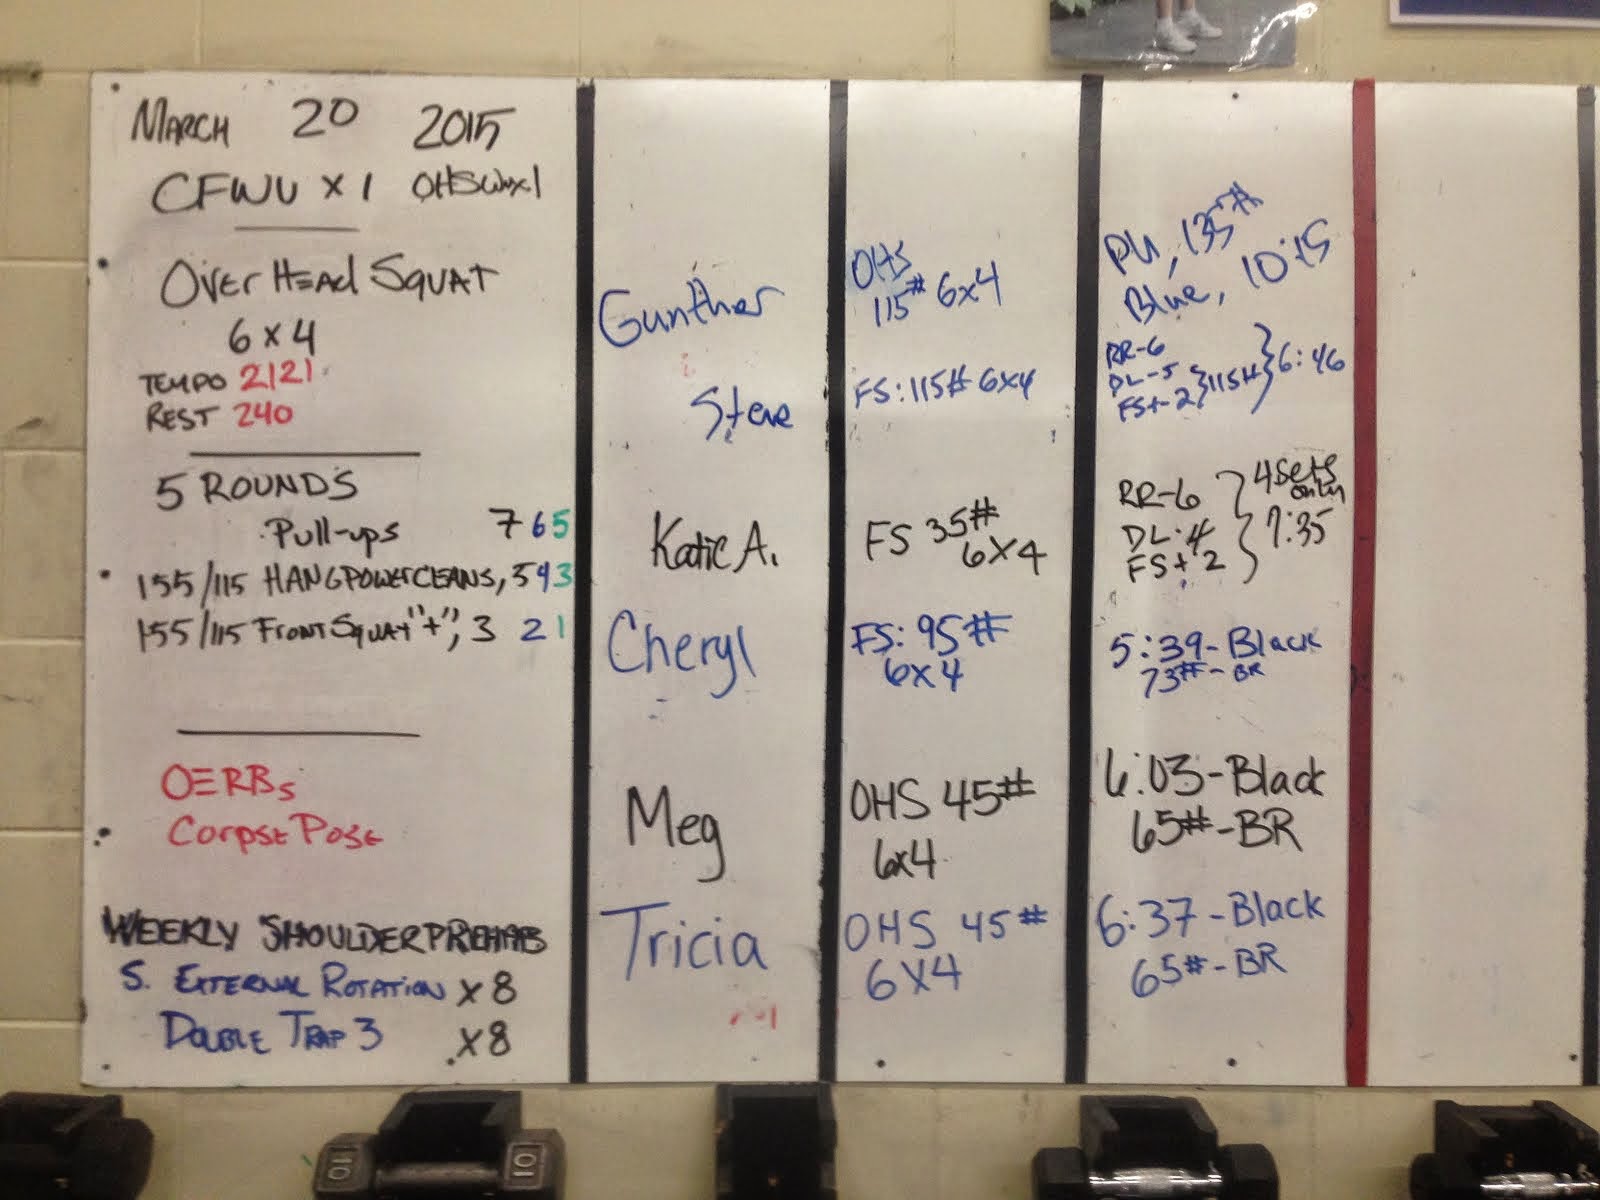 MARCH 20 2015
CFWU x 1 OHSWUx1
OVER HEAD SQUAT
6 x 4
TEMPO 2121
REST 240
5 ROUNDS
Pull-ups 7 6 5
155/115 HANG POWER CLEANS, 5 4 3
155/115 FRONT SQUAT "+", 3 2 1
OERBs
CORPSE POSE
WEEKLY SHOULDER PREHAB
S. EXTERNAL ROTATION x 8
DOUBLE TRAP 3 x 8
Gunther
OHS
115# 6x4
PU, 135#
Blue, 10:15
Steve
FS: 115# 6x4
RR-6
DL-5
FS+-2 } 115# } 6:46
Katie A.
FS 35#
6x4
RR-6
DL-4
FS+ 2
4 sets
only
7:35
Cheryl
FS: 95#
6x4
5:39-Black
73#-BR
Meg
OHS 45#
6x4
6:03-Black
65#-BR
Tricia
OHS 45#
6x4
6:37-Black
65#-BR
10
10